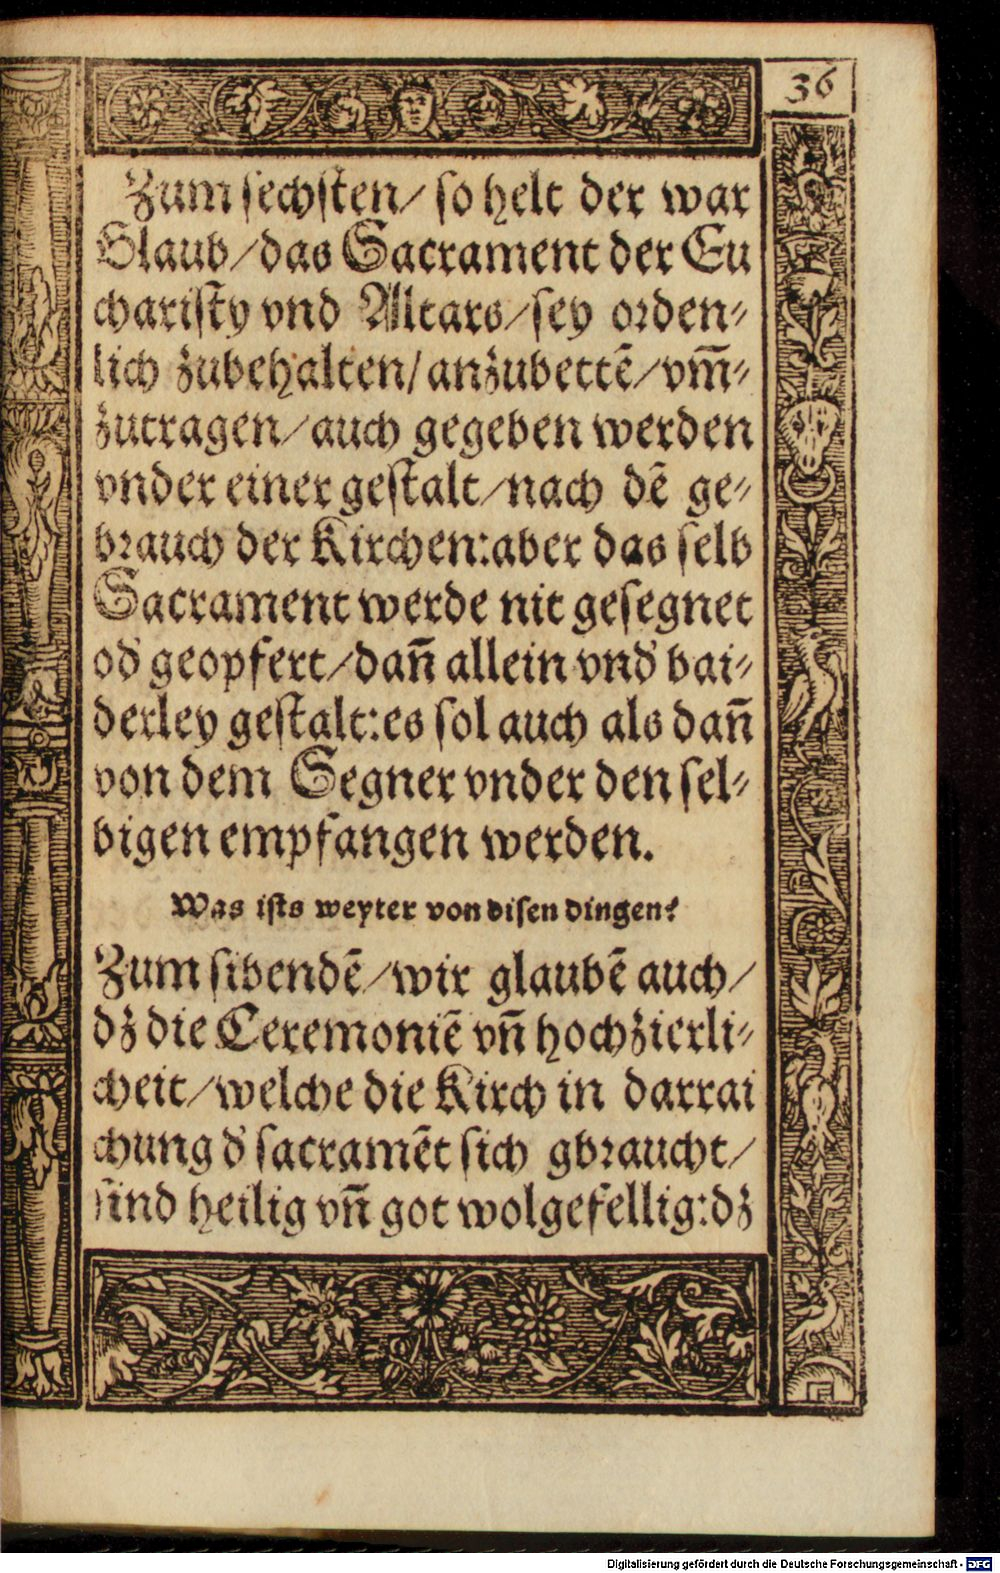 36
Zum sechsten/ so helt der war
Glaub/das Sacrament der Eu
charisty vnd Altars/sey orden-
lich zubehalten/anzubettē/vm̄-
zutragen/auch gegeben werden
vnder einer gestalt/nach dē ge-
brauch der Kirchen:aber das selb
Sacrament werde nit gesegnet
od' geopfert/dan̄ allein vnd' bai-
derley gestalt:es sol auch als dan̄
von dem Segner vnder den sel-
bigen empfangen werden.
Was ists weyter von disen dingen?
Zum sibendē/wir glaubē auch/
dz die Ceremoniē vn̄ hochzierli-
cheit/welche die Kirch in darrai
chung d' sacramēt sich gbraucht/
sind heilig vn̄ got wolgefellig:dz
Digitalisierung gefördert durch die Deutsche Forschungsgemeinschaft - DFG